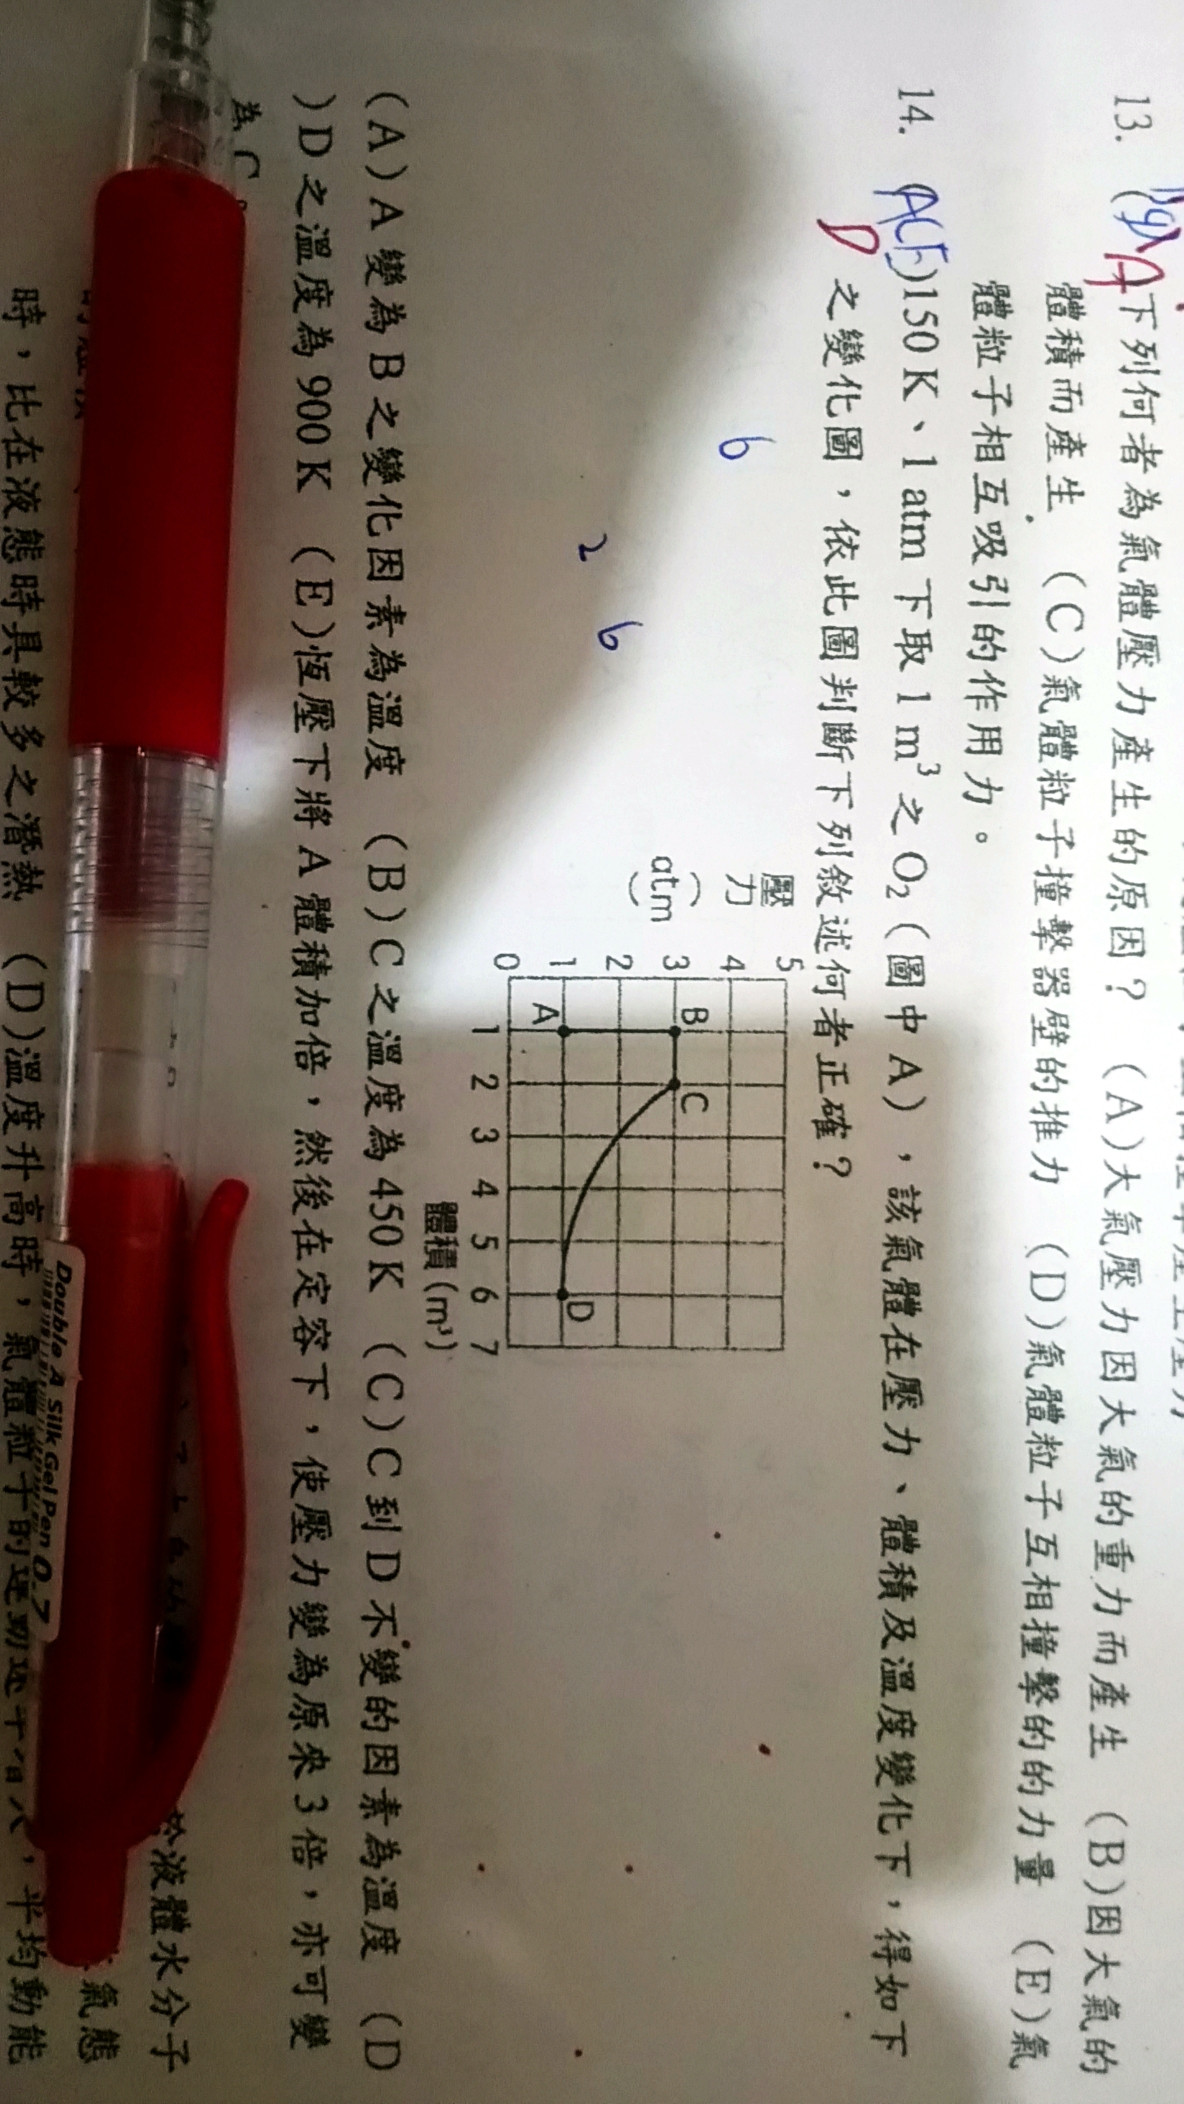 13. (A)下列何者為氣體壓力產生的原因？ (A)大氣壓力因大氣的重力而產生 (B)因大氣的
體積而產生 (C)氣體粒子撞擊器壁的推力 (D)氣體粒子互相撞擊的的力量 (E)氣
體粒子相互吸引的作用力。
14. (ACE)150 K、1 atm 下取 1 m³ 之 O₂（圖中 A），該氣體在壓力、體積及溫度變化下，得如下
D
之變化圖，依此圖判斷下列敘述何者正確？
6
2
6
壓力
(atm)
5
4
3
2
1
0
B
C
A
D
1 2 3 4 5 6 7
體積(m³)
(A) A 變為 B 之變化因素為溫度 (B) C 之溫度為 450 K (C) C 到 D 不變的因素為溫度 (D
) D 之溫度為 900 K (E)恆壓下將 A 體積加倍，然後在定容下，使壓力變為原來 3 倍，亦可變
為 C。
液體水分子
氣態
時，比在液態時具較多之潛熱 (D)溫度升高時，氣體粒子的
平均動能
Double A Silk Gel Pen 0.7